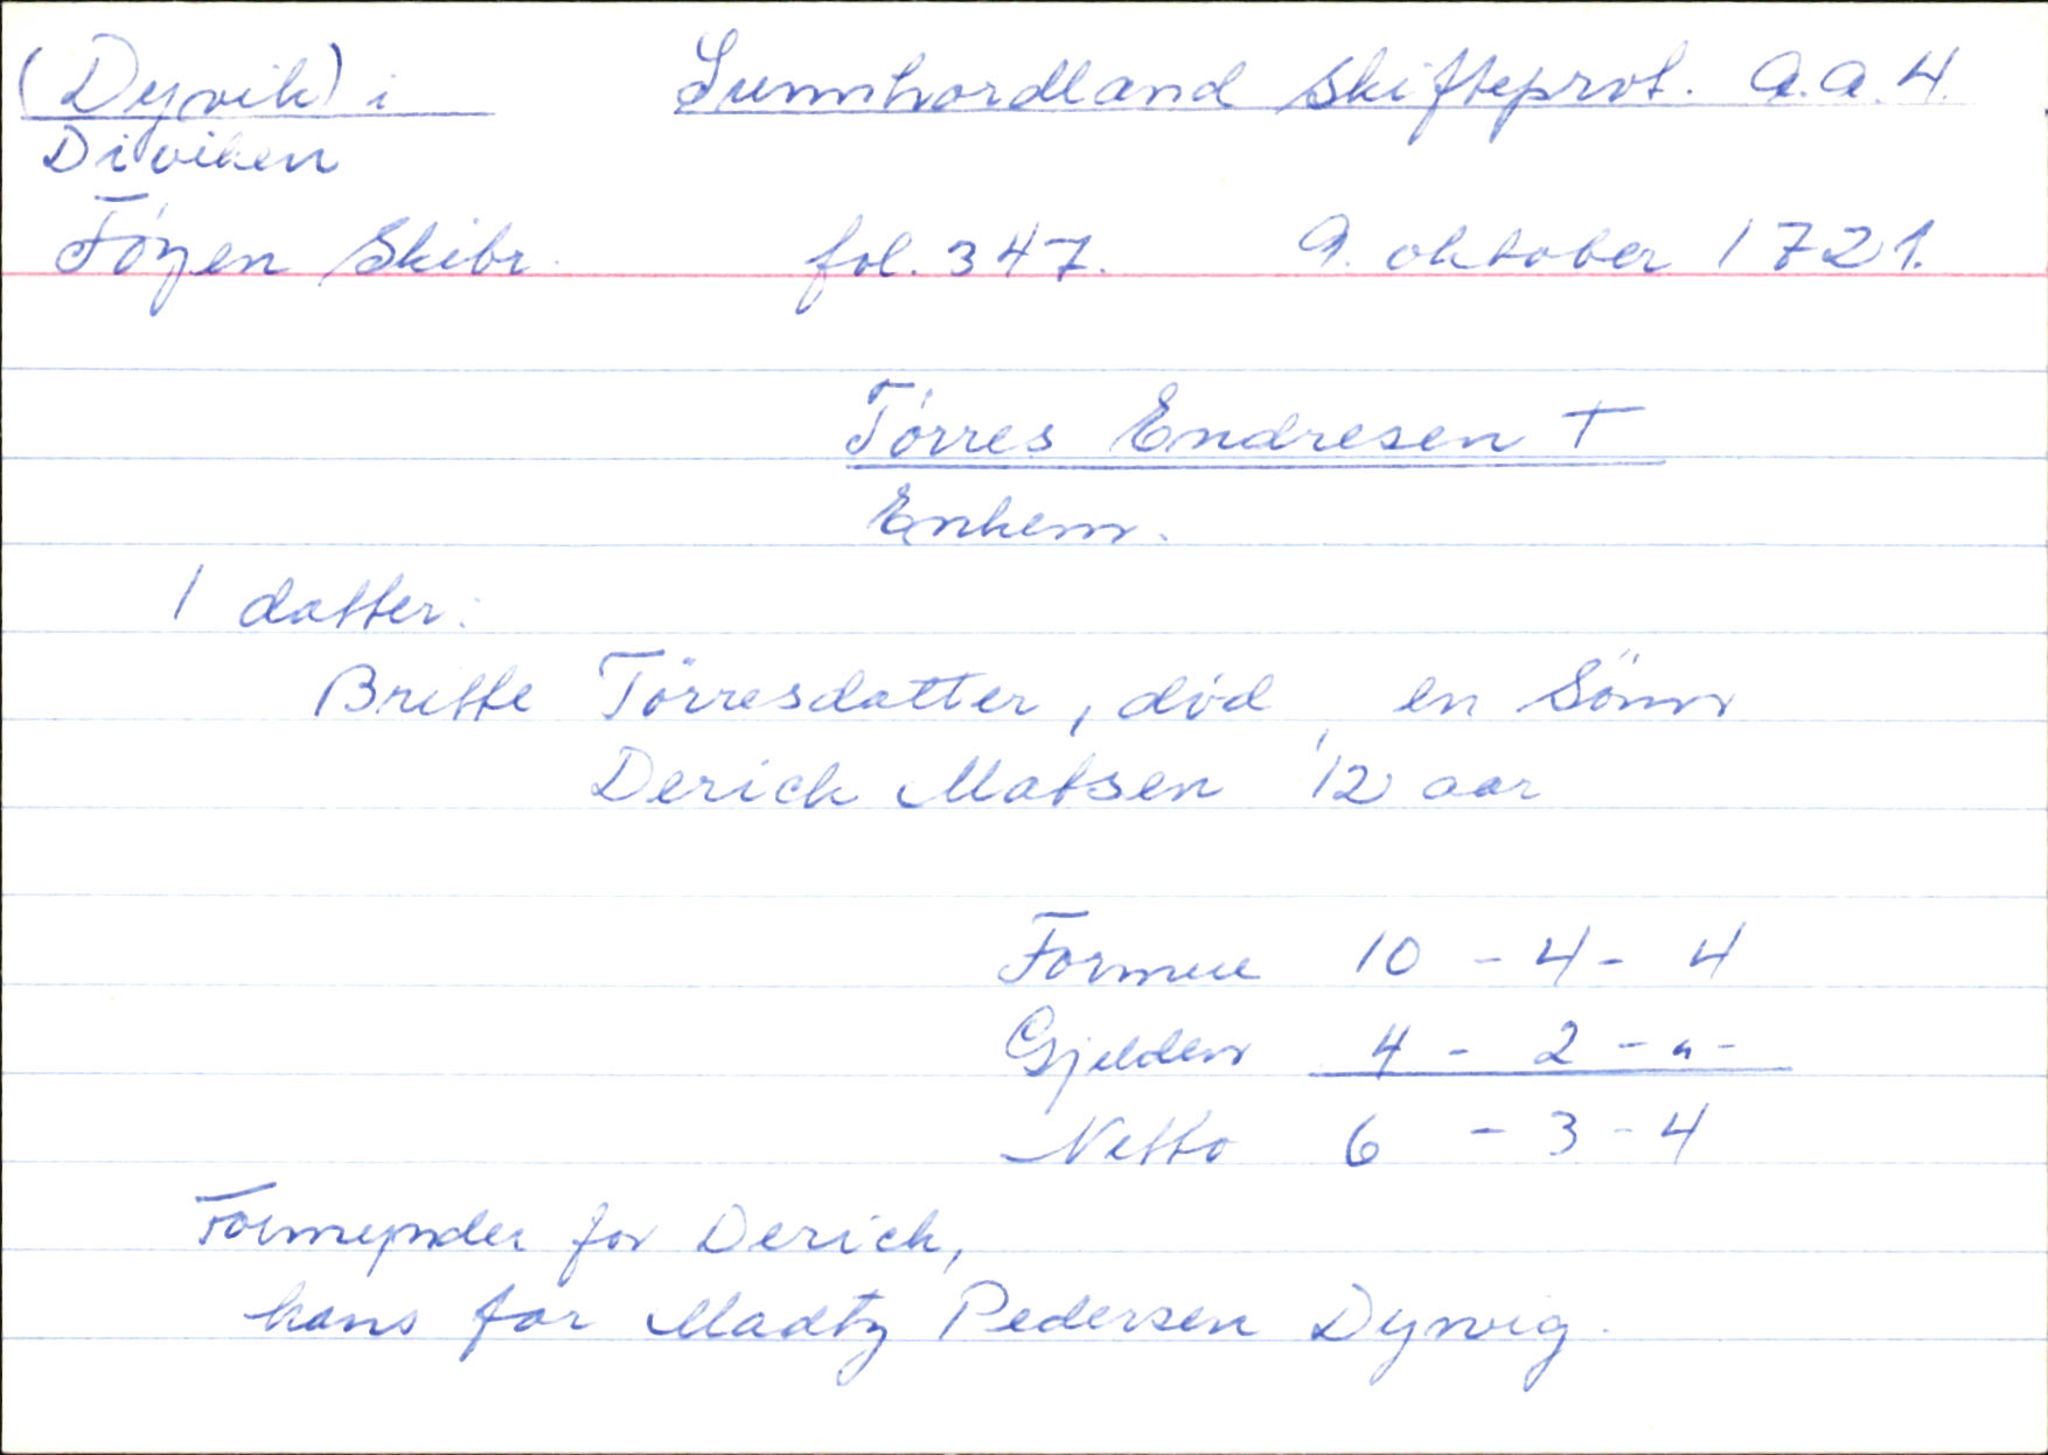 (Dyvik) i Sunnhordland skifteprot. A.a. 4.
Diviken
Föyen Skibr. fol. 347. 9. oktober 1721.
Törres Endresen †
Enkem.
1 datter:
Britte Törresdatter, död, en Sönn
Derick Matsen 12 aar
Formue 10 - 4 - 4
Gjelden 4 - 2 - " -
Netto 6 - 3 - 4
Formynder for Derick,
hans far Madtz Pedersen Dyrvig.